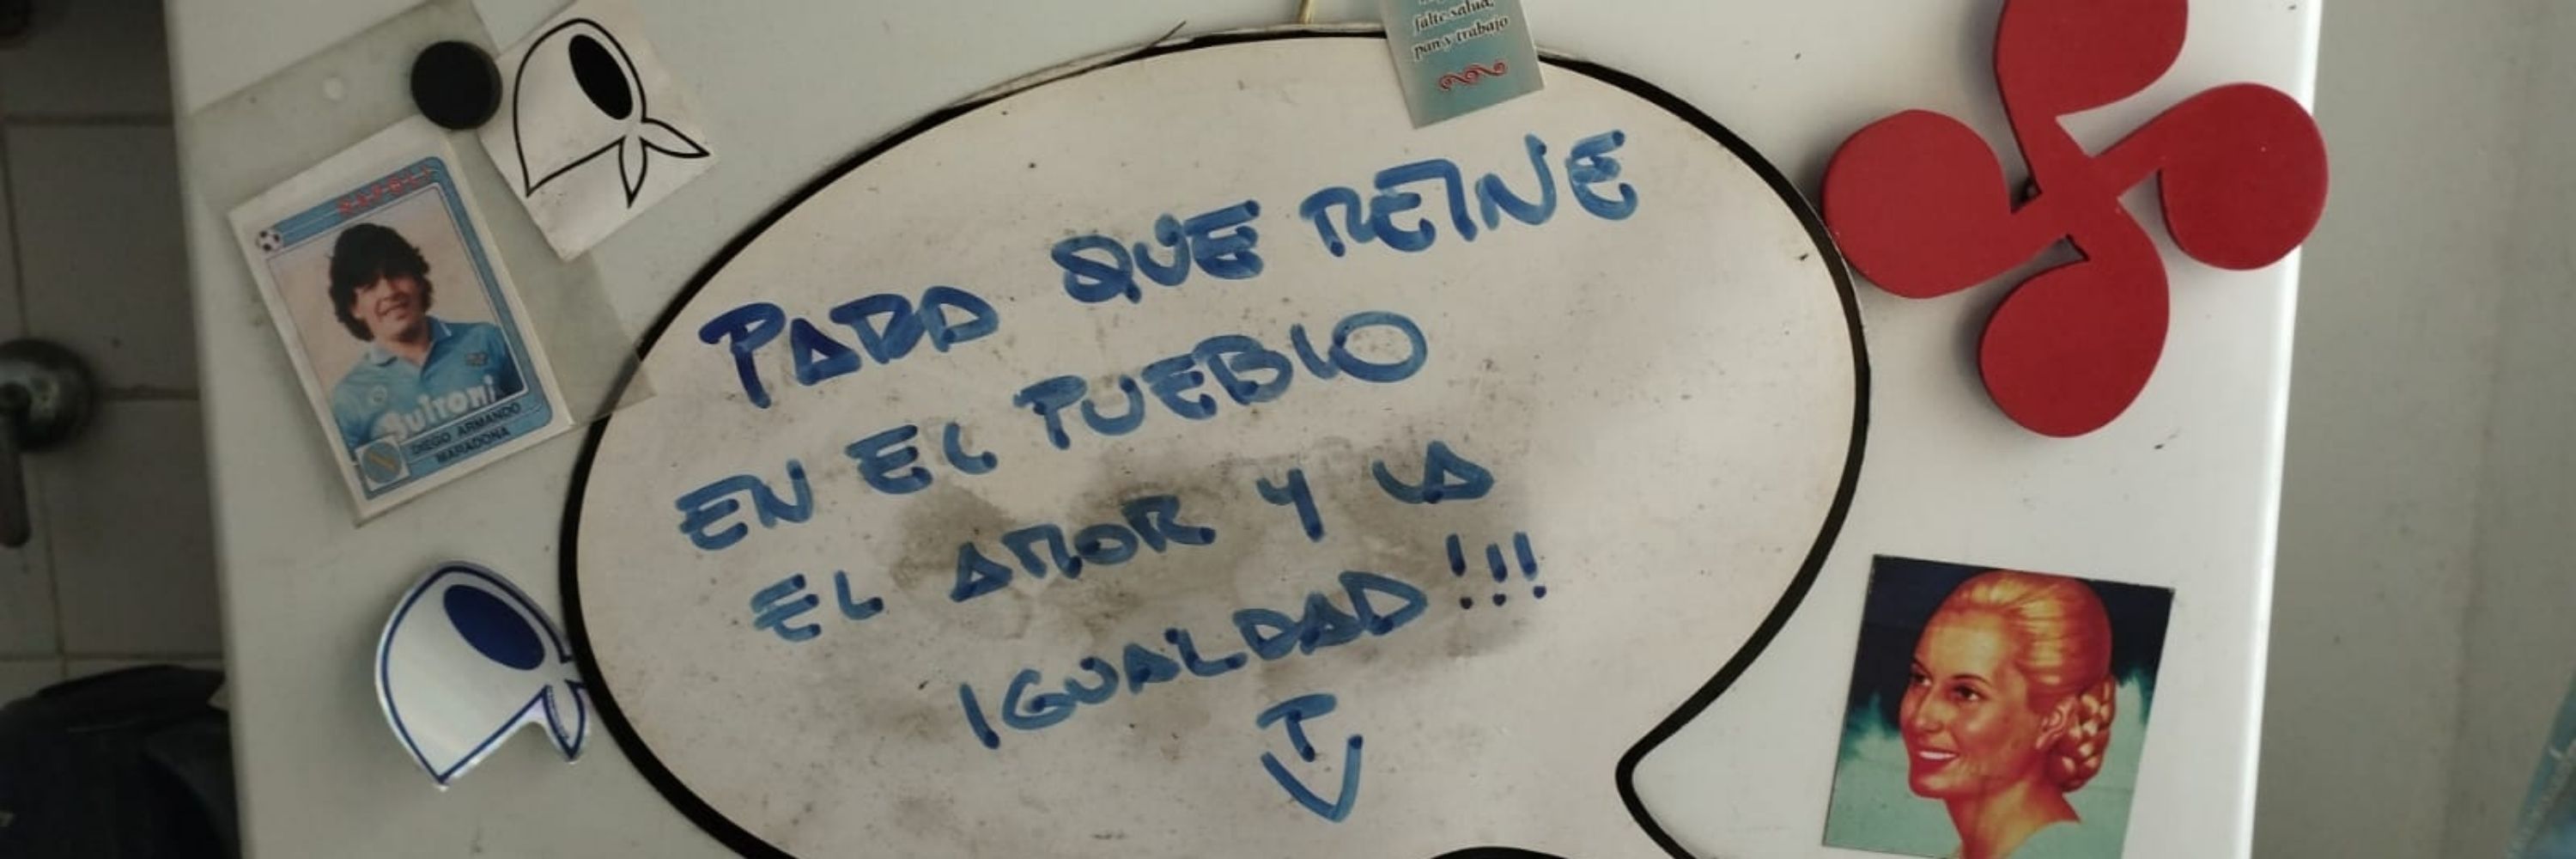 falte salud,
pan y trabajo
NAPOLI
Buitoni
DIEGO ARMANDO
MARADONA
PARA QUE REINE
EN EL PUEBLO
EL AMOR Y LA
IGUALDAD!!!